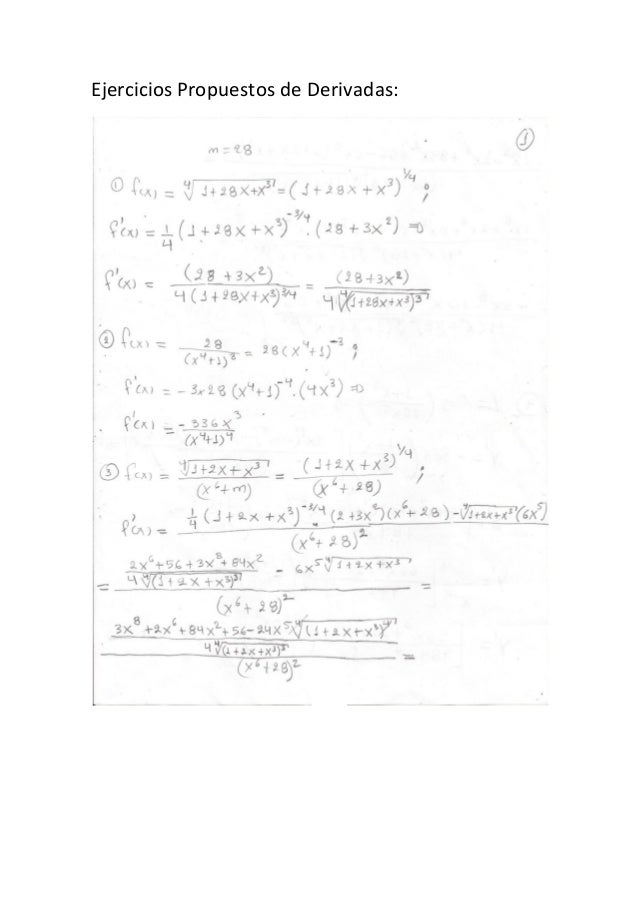 Ejercicios Propuestos de Derivadas:
①
m=28
① f(x) = ∜(1+28x+x³) = (1+28x+x³)^1/4 ;
f'(x) = 1/4 (1+28x+x³)^-3/4 . (28+3x²) ⇒
f'(x) = (28+3x²) / 4(1+28x+x³)^3/4 = (28+3x²) / 4∜((1+28x+x³)³)
② f(x) = 28 / (x⁴+1)³ = 28(x⁴+1)^-3 ;
f'(x) = -3x28(x⁴+1)^-4 . (4x³) ⇒
f'(x) = -336x³ / (x⁴+1)⁴
③ f(x) = ∜(1+2x+x³) / (x⁶+m) = (1+2x+x³)^1/4 / (x⁶+28) ;
f'(x) = [1/4 (1+2x+x³)^-3/4 . (2+3x²)(x⁶+28) - ∜(1+2x+x³) (6x⁵)] / (x⁶+28)²
= [(2x⁶+56+3x⁸+84x²) / 4∜((1+2x+x³)³) - 6x⁵∜(1+2x+x³)] / (x⁶+28)² =
[(3x⁸+2x⁶+84x²+56-24x⁵∜((1+2x+x³)⁴)) / 4∜((1+2x+x³)³)] / (x⁶+28)² =